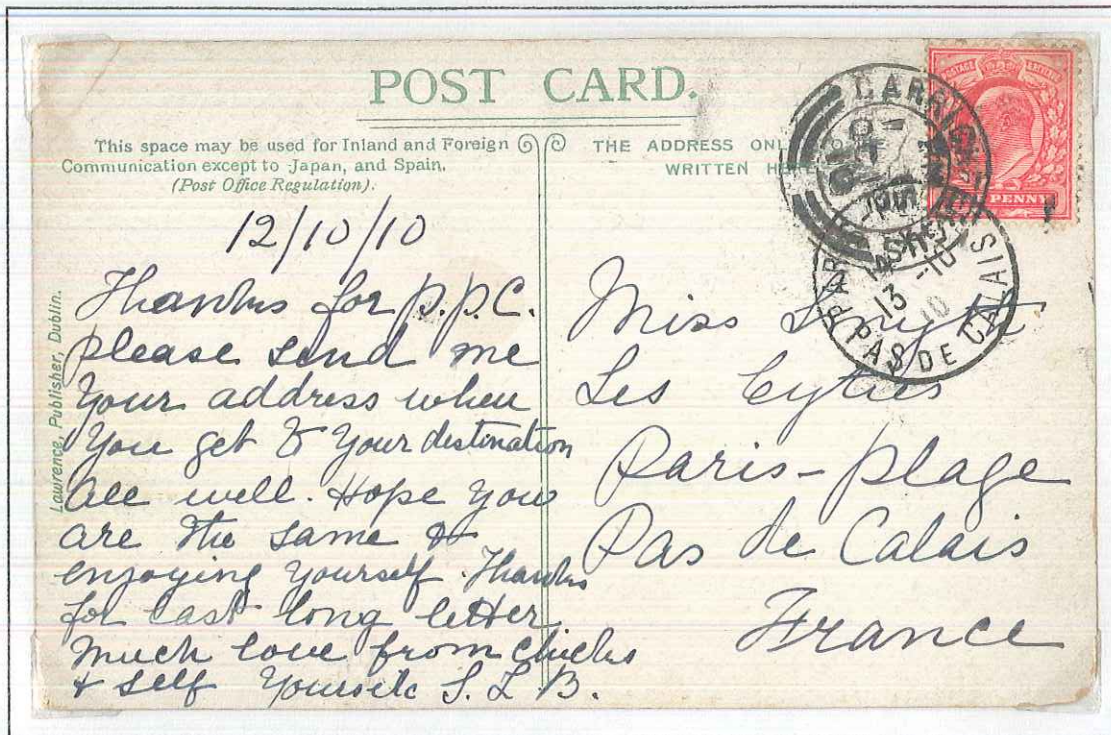 POST CARD.
This space may be used for Inland and Foreign
Communication except to Japan, and Spain.
(Post Office Regulation).
THE ADDRESS ONL
WRITTEN HERE
PENNY
POSTAGE REVENUE
PAS DE CALAIS
13 -10
10
Lawrence, Publisher, Dublin.
12/10/10
Thanks for P.P.C.
please send me
Your address when
You get to Your destination
All well. Hope you
are the same &
enjoying yourself. Thanks
for last long letter
Much love from chicks
& self Yours etc S. L. B.
Miss Smyth
Les
Paris-Plage
Pas de Calais
France